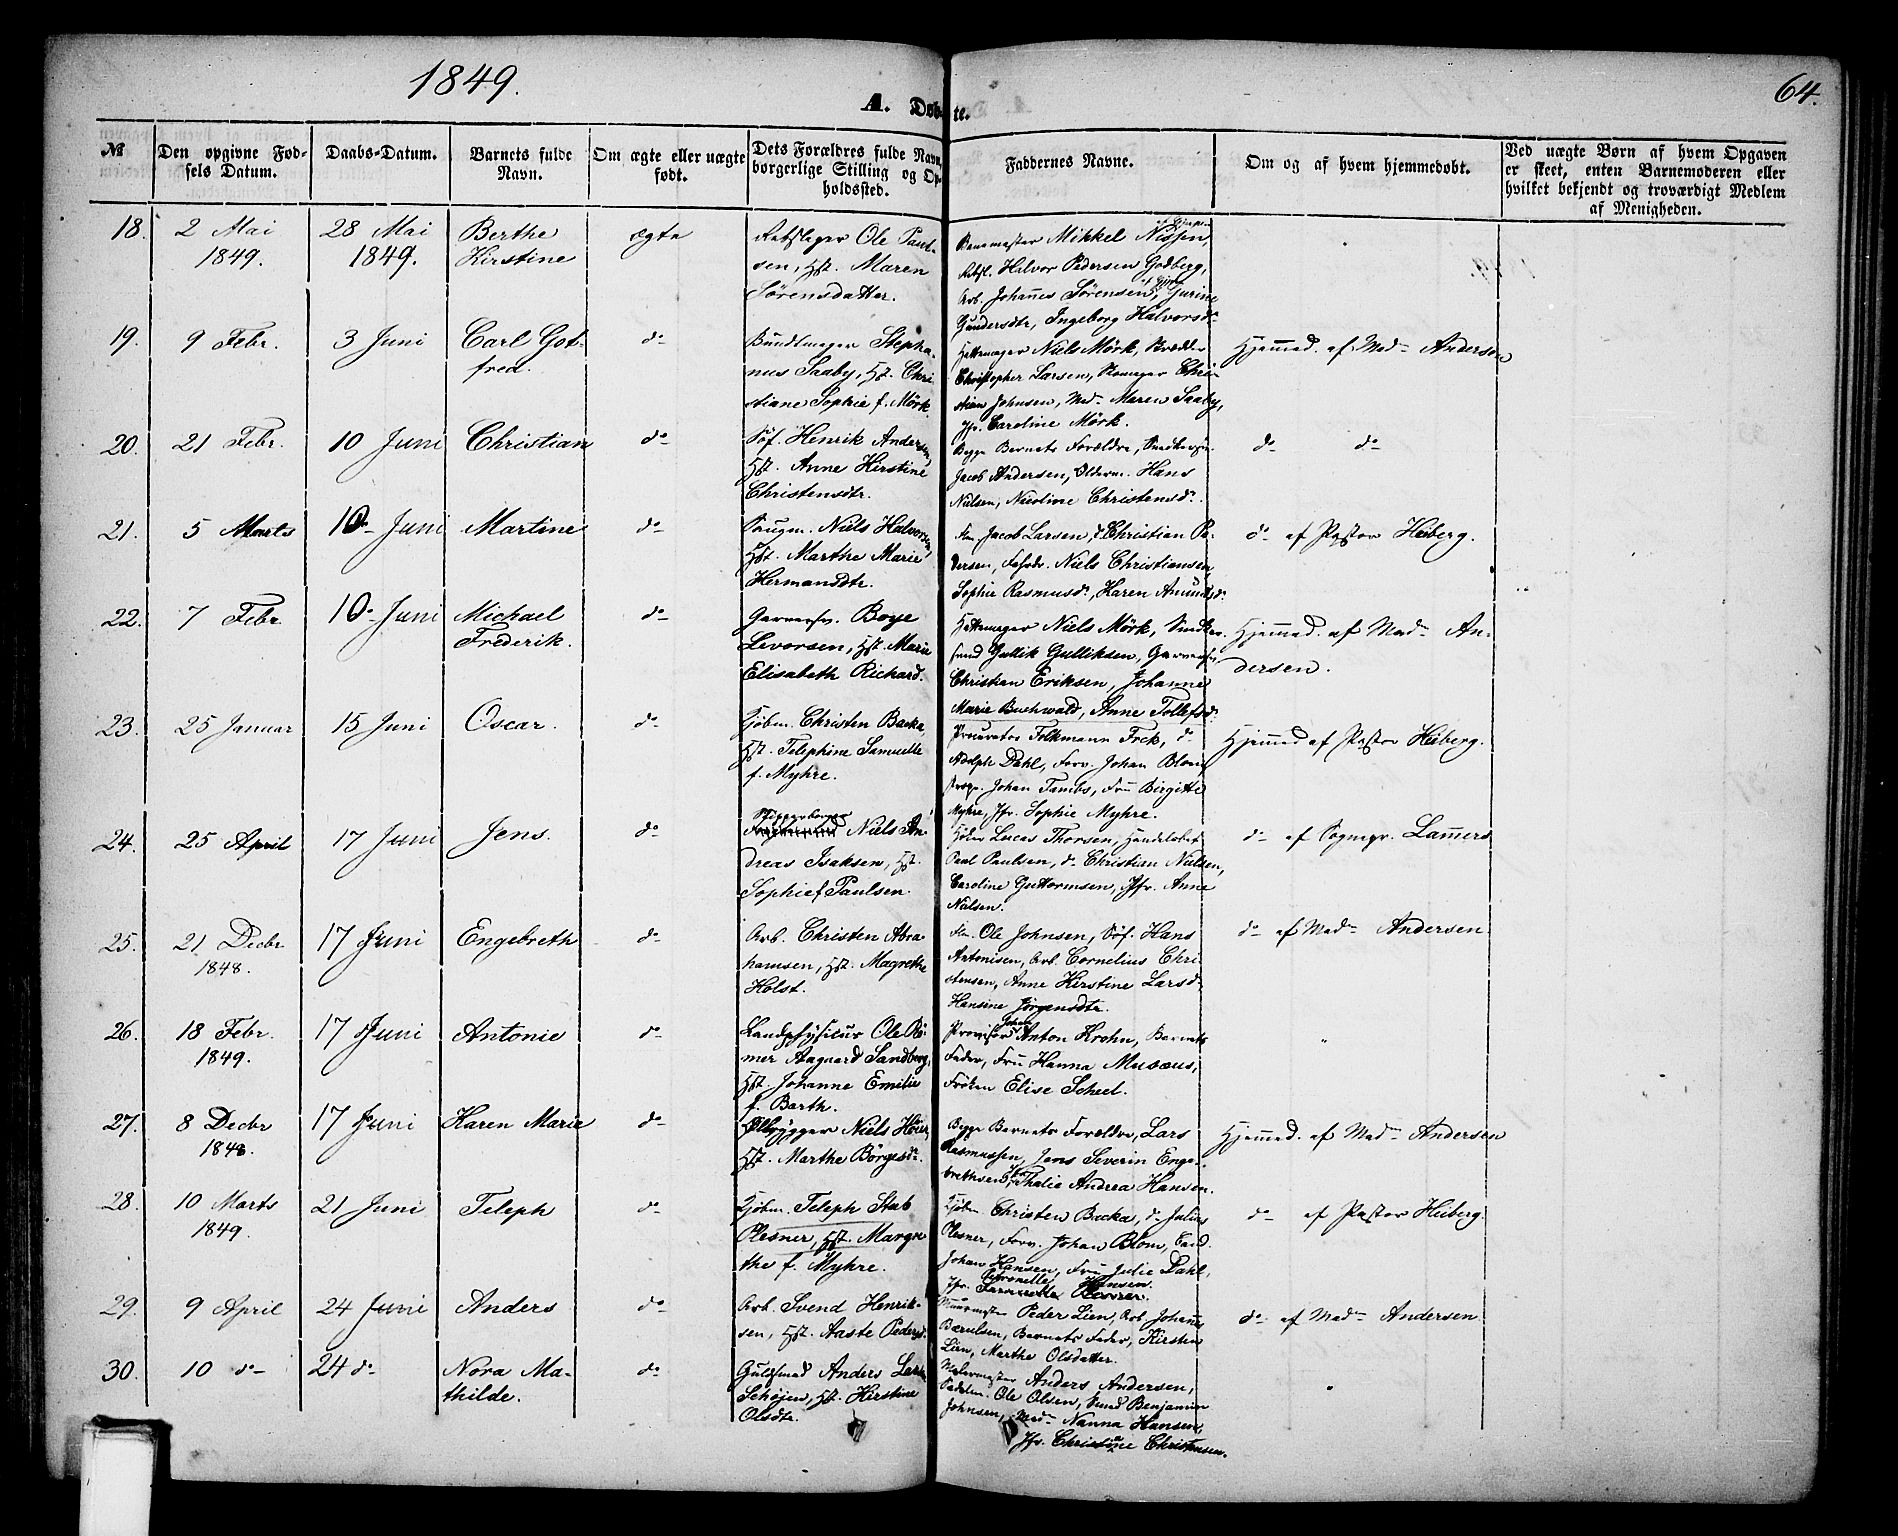 1849.
64.
A. Døbte.
№
Den opgivne Fød-
sels Datum.
Daabs-Datum.
Barnets fulde
Navn.
Om ægte eller uægte
født.
Dets Forældres fulde Navn,
borgerlige Stilling og Op-
holdssted.
Faddernes Navne.
Om og af hvem hjemmedøbt.
Ved uægte Børn af hvem Opgaven
er skeet, enten Barnemoderen eller
hvilket bekjendt og troværdigt Medlem
af Menigheden.
18.
2 Mai
1849.
28 Mai
1849.
Berthe
Kirstine
ægte
Rebslager Ole Paul-
sen, Hst. Maren
Sørensdatter.
Mikkel Nissen,
Rebsl. Halvor Pedersen Godberg,
Arb. Johannes Sørensen, Gurine
Gundersdtr, Ingeborg Halvorsdr
19.
9 Febr.
3 Juni
Carl Got-
fred.
do
Bundtmager Stepha-
nus Saaby, Hst. Chri
stiane Sophie f. Mörk.
Hattemager Niels Mörk, Skrædder
Christopher Larsen, Skomager Chri-
stian Johnsen, Mad. Maren Saaby,
Jfr. Caroline Mörk.
Hjemmed. af Mad. Anderson
20.
21 Febr.
10 Juni
Christian
do
Söf. Henrik Andersen,
Hst. Anne Kirstine
Christensdtr.
Begge Barnets Forældre,
Jacob Andersen, Olderm. Hans
Nielsen, Nicoline Christensdr.
do do
21.
5 Marts
10 Juni
Martine
do
Saugm. Niels Halvorsen,
Hst. Marthe Marie
Hermandsdtr.
Jacob Larsen, do Christian Pe-
dersen, Niels Christiansen,
Sophie Rasmusdr, Karen Amundsdr
do af Pastor Heiberg.
22.
7 Febr.
10 Juni
Michael
Frederik.
do
Garversv. Boye
Levorsen, Hst. Marie
Elisabeth Richard.
Hattemager Niels Mörk, Snedker-
svend Gullik Gulliksen, Garversv.
Christian Eriksen, Johanne
Marie Buchwald, Anne Tollefsdr
Hjemmed. af Mad. An-
dersen.
23.
25 Januar
15 Juni
Oscar.
do
Kjöbm. Christen Backa,
Hst. Telephine Samuelle
f. Myhre.
Procurator Folkmann Frck, do
Adolph Dahl, Forv. Johan Blom,
Johan Tambs, Fru Birgitte
Myhre, Jfr. Sophie Myhre.
Hjemmed af Pastor Heiberg.
24.
25 April
17 Juni
Jens.
do
Niels An-
dreas Isaksen, Hst.
Sophie f. Paulsen.
Lucas Thorsen, Handelsbet.
Paul Paulsen, do Christian Nielsen,
Caroline Guttormsen, Jfr. Anne
Nielsen.
do af Sognepr. Lammers
25.
21 Decbr
1848.
17 Juni
Engebreth
do
Arb. Christen Abra-
hamsen, Hst. Magrethe
Holst.
Ole Johnsen, Söf. Hans
Antonisen, Arb. Cornelius Chri-
stensen, Anne Kirstine Larsdr
Hansine Jörgensdtr.
do af Mad. Andersen
26.
18 Febr.
1849.
17 Juni
Antonie
do
Landphysicus Ole Rö-
mer Aagaard Sandberg,
Hst. Johanne Emilie
f. Barth.
Provisor Johan Anton Krohn, Barnets
Fader, Fru Hanna Musæus,
Fröken Elise Scheel.
27.
8 Decbr
1848.
17 Juni
Karen Marie
do
Ölbrygger Niels Höier,
Hst. Marthe Börgesdr.
Begge Barnets Forældre, Lars
Rasmussen, Jens Severin Enge-
brethsen, Jfr. Thalia Andrea Hansen.
Hjemmed. af Mad. Andersen
28.
10 Marts
1849.
21 Juni
Teleph
do
Kjöbm. Teleph Stub
Plesner, Hst. Margre
the f. Myhre.
Kjöbm Christen Backa, do Julius
Plesner, Forv. Johan Blom, Cand.
Johan Hansen, Fru Julie Dahl,
Jfr. Petronelle Hansen.
do af Pastor Heiberg.
29.
9 April
24 Juni
Anders
do
Arb. Svend Henrik-
sen, Hst. Aaste Pedersd.
Muurmester Peder Lien, Arb. Johannes
Bærulsen, Barnets Fader, Kirsten
Lien, Marthe Olsdatter.
do af Mad. Andersen
30.
10 do
24 do
Nora Ma-
thilde.
do
Guldsmed Anders
Hst. Kirstine
Olsdtr.
Malermester Anders Andersen,
Ole Olsen, Smed Benjamin
Johnsen, Mad. Nanna Hansen,
Jfr. Christine Christensen.